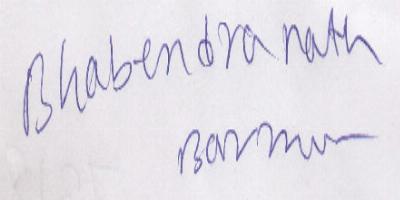 Bhabendra nath
Barman